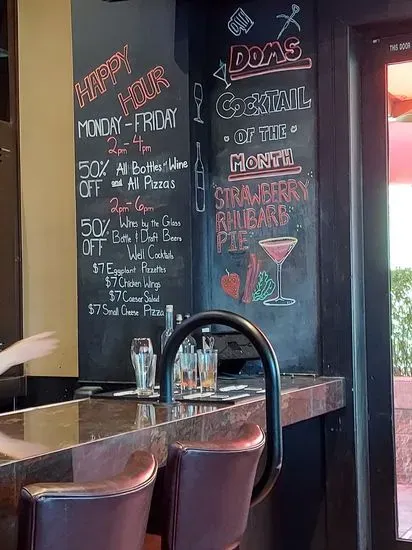 HAPPY
HOUR
MONDAY - FRIDAY
2pm - 4pm
50% All Bottles of Wine
OFF and All Pizzas
2pm - 6pm
50% Wines by the Glass
OFF Bottle & Draft Beers
Well Cocktails
$7 Eggplant Pizzettes
$7 Chicken Wings
$7 Caesar Salad
$7 Small Cheese Pizza
DOMS
COCKTAIL
OF THE
MONTH
STRAWBERRY
RHUBARB
PIE
THIS DOOR